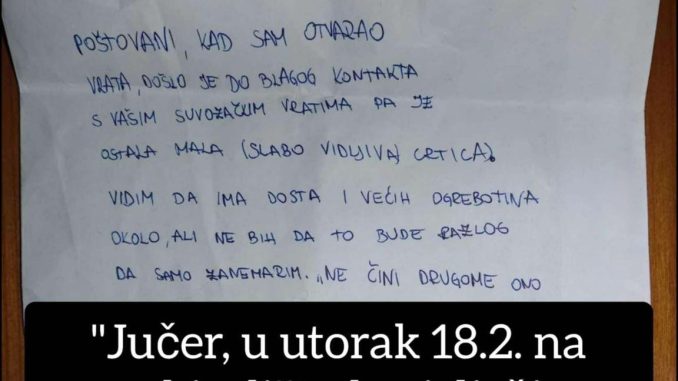 POŠTOVANI, KAD SAM OTVARAO
VRATA, DOŠLO JE DO BLAGOG KONTAKTA
S VAŠIM SUVOZAČKIM VRATIMA PA JE
OSTALA MALA (SLABO VIDLJIVA) CRTICA.
VIDIM DA IMA DOSTA I VEĆIH OGREBOTINA
OKOLO, ALI NE BIH DA TO BUDE RAZLOG
DA SAMO ZANEMARIM. „NE ČINI DRUGOME ONO
"Jučer, u utorak 18.2. na